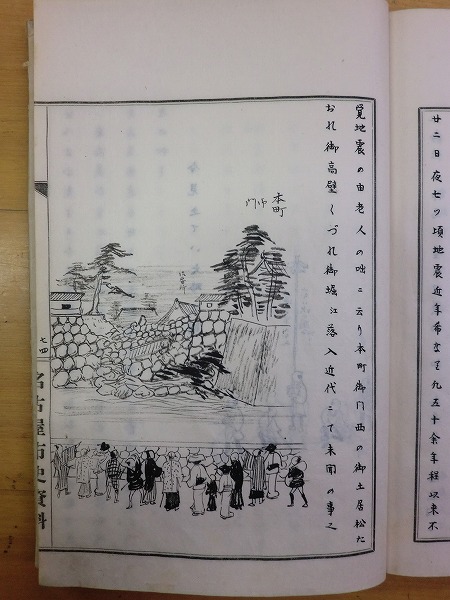 廿二日夜七ツ頃地震近年希なり凡五十余年程以来不
覚地震の由老人の咄ニ云り本町御門西の御土居松た
おれ御高塀くづれ御堀江落入近代ニて未聞の事之
本町
御門
七四
名古屋市史資料